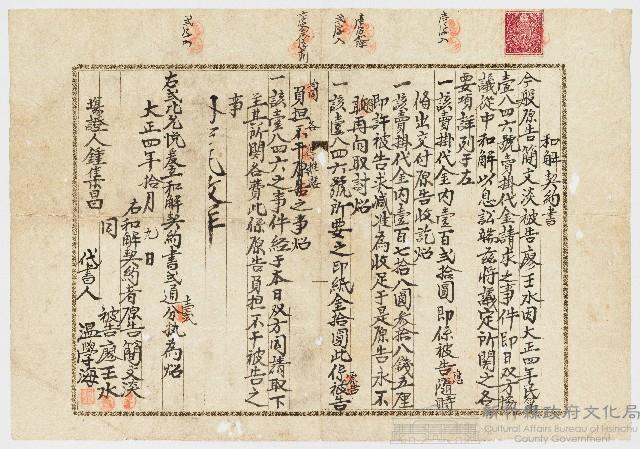 和解契約書
今般原告簡文淡被告廖壬水因大正四年民第
壹八四六號賣掛代金請求之事件即日双方協
議從中和解以息訟端茲將議定所關之各
要項詳列于左
一該賣掛代金內壹百弍拾圓即係被告隨時
備出交付原告收訖炤
一該賣掛代金內壹百七拾八圓参拾八錢五厘
即許被告夫減准為收足于是原告永不
敢再向取討炤
一該壹八四六號所要之印紙金拾圓此係被告
負担不干原告之事炤
一該壹八四六之事件經于本日双方同請取下
其所關各費此係原告負担不干被告之
事
右弍比允悅爰立和解契約書弍通分執為炤
大正四年拾月九日
右和解契約者原告簡文淡
同 被告廖壬水
代書人 溫學海
塲證人鍾集昌
新竹縣政府文化局
Cultural Affairs Bureau of Hsinchu
County Government